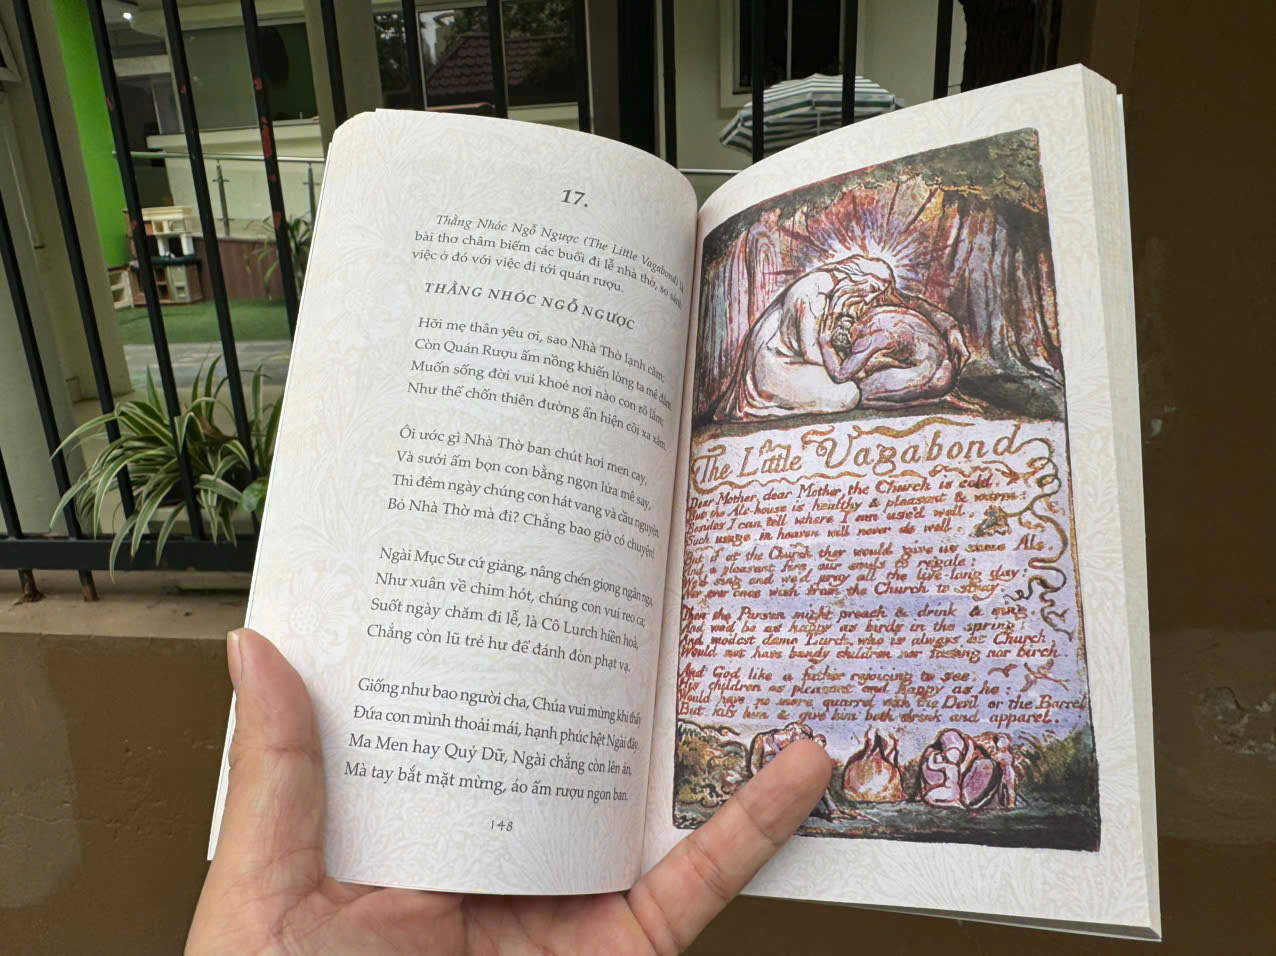 17.
Thằng Nhóc Ngỗ Ngược (The Little Vagabond) là
bài thơ châm biếm các buổi đi lễ nhà thờ, so sánh
việc ở đó với việc đi tới quán rượu.
THẰNG NHÓC NGỖ NGƯỢC
Hỡi mẹ thân yêu ơi, sao Nhà Thờ lạnh căm;
Còn Quán Rượu ấm nồng khiến lòng ta mê đắm;
Muốn sống đời vui khoẻ nơi nào con rõ lắm;
Như thế chốn thiên đường ẩn hiện cõi xa xăm.
Ôi ước gì Nhà Thờ ban chút hơi men cay,
Và sưởi ấm bọn con bằng ngọn lửa mê say,
Thì đêm ngày chúng con hát vang và cầu nguyện
Bỏ Nhà Thờ mà đi? Chẳng bao giờ có chuyện!
Ngài Mục Sư cứ giảng, nâng chén giọng ngân nga,
Như xuân về chim hót, chúng con vui reo ca;
Suốt ngày chăm đi lễ, là Cô Lurch hiền hoà,
Chẳng còn lũ trẻ hư để đánh đòn phạt vạ.
Giống như bao người cha, Chúa vui mừng khi thấy
Đứa con mình thoải mái, hạnh phúc hệt Ngài đây,
Ma Men hay Quỷ Dữ, Ngài chẳng còn lên án,
Mà tay bắt mặt mừng, áo ấm rượu ngon ban.
148
The Little Vagabond
Dear Mother, dear Mother, the Church is cold,
But the Ale-house is healthy & pleasant & warm;
Besides I can tell where I am use'd well,
Such usage in heaven will never do well.
But if at the Church they would give us some Ale,
And a pleasant fire, our souls to regale;
We'd sing and we'd pray all the live-long day;
Nor ever once wish from the Church to stray,
Then the Parson might preach & drink & sing,
And we'd be as happy as birds in the spring;
And modest dame Lurch, who is always at Church
Would not have bandy children nor fasting nor birch
And God like a father rejoicing to see,
His children as pleasant and happy as he;
Would have no more quarrel with the Devil or the Barrel
But kiss him & give him both drink and apparel.